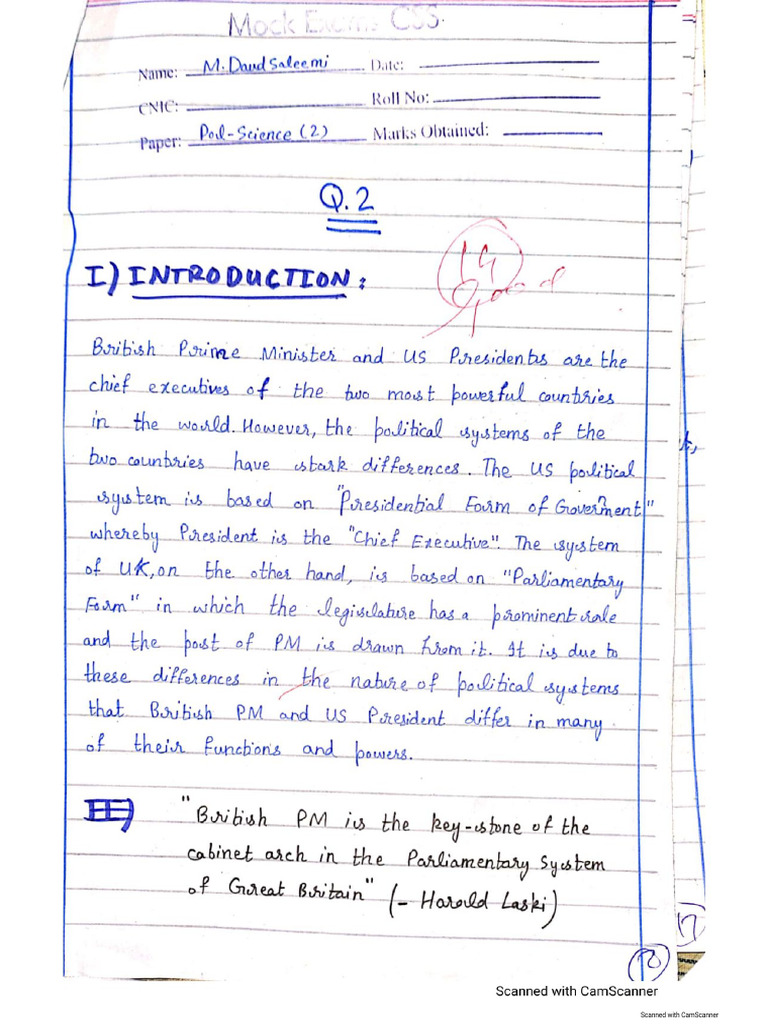 Mock Exams CSS.
Name: M. Daud Saleemi Date:
CNIC: Roll No:
Paper: Pol-Science (2) Marks Obtained:
Q.2
14
Good
I) INTRODUCTION:
British Prime Minister and US Presidents are the
chief executives of the two most powerful countries
in the world. However, the political systems of the
two countries have stark differences. The US political
system is based on "Presidential Form of Government"
whereby President is the "Chief Executive". The system
of UK, on the other hand, is based on "Parliamentary
Form" in which the legislature has a prominent role
and the post of PM is drawn from it. It is due to
these differences in the nature of political systems
that British PM and US President differ in many
of their functions and powers.
"British PM is the key-stone of the
cabinet arch in the Parliamentary System
of Great Britain" (- Harold Laski)
Scanned with CamScanner
Scanned with CamScanner